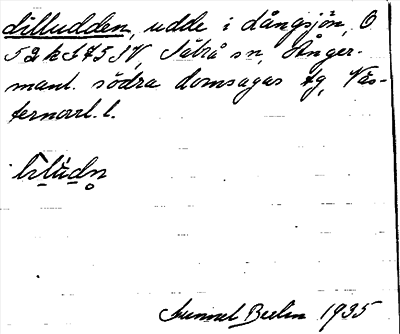 Lilludden, udde i Långsjön, O
52 k I 75 SV, Säbrå sn, Ånger-
manl. södra domsagas tg, Väs-
ternorrl. l.
Gunnel Beelin 1935